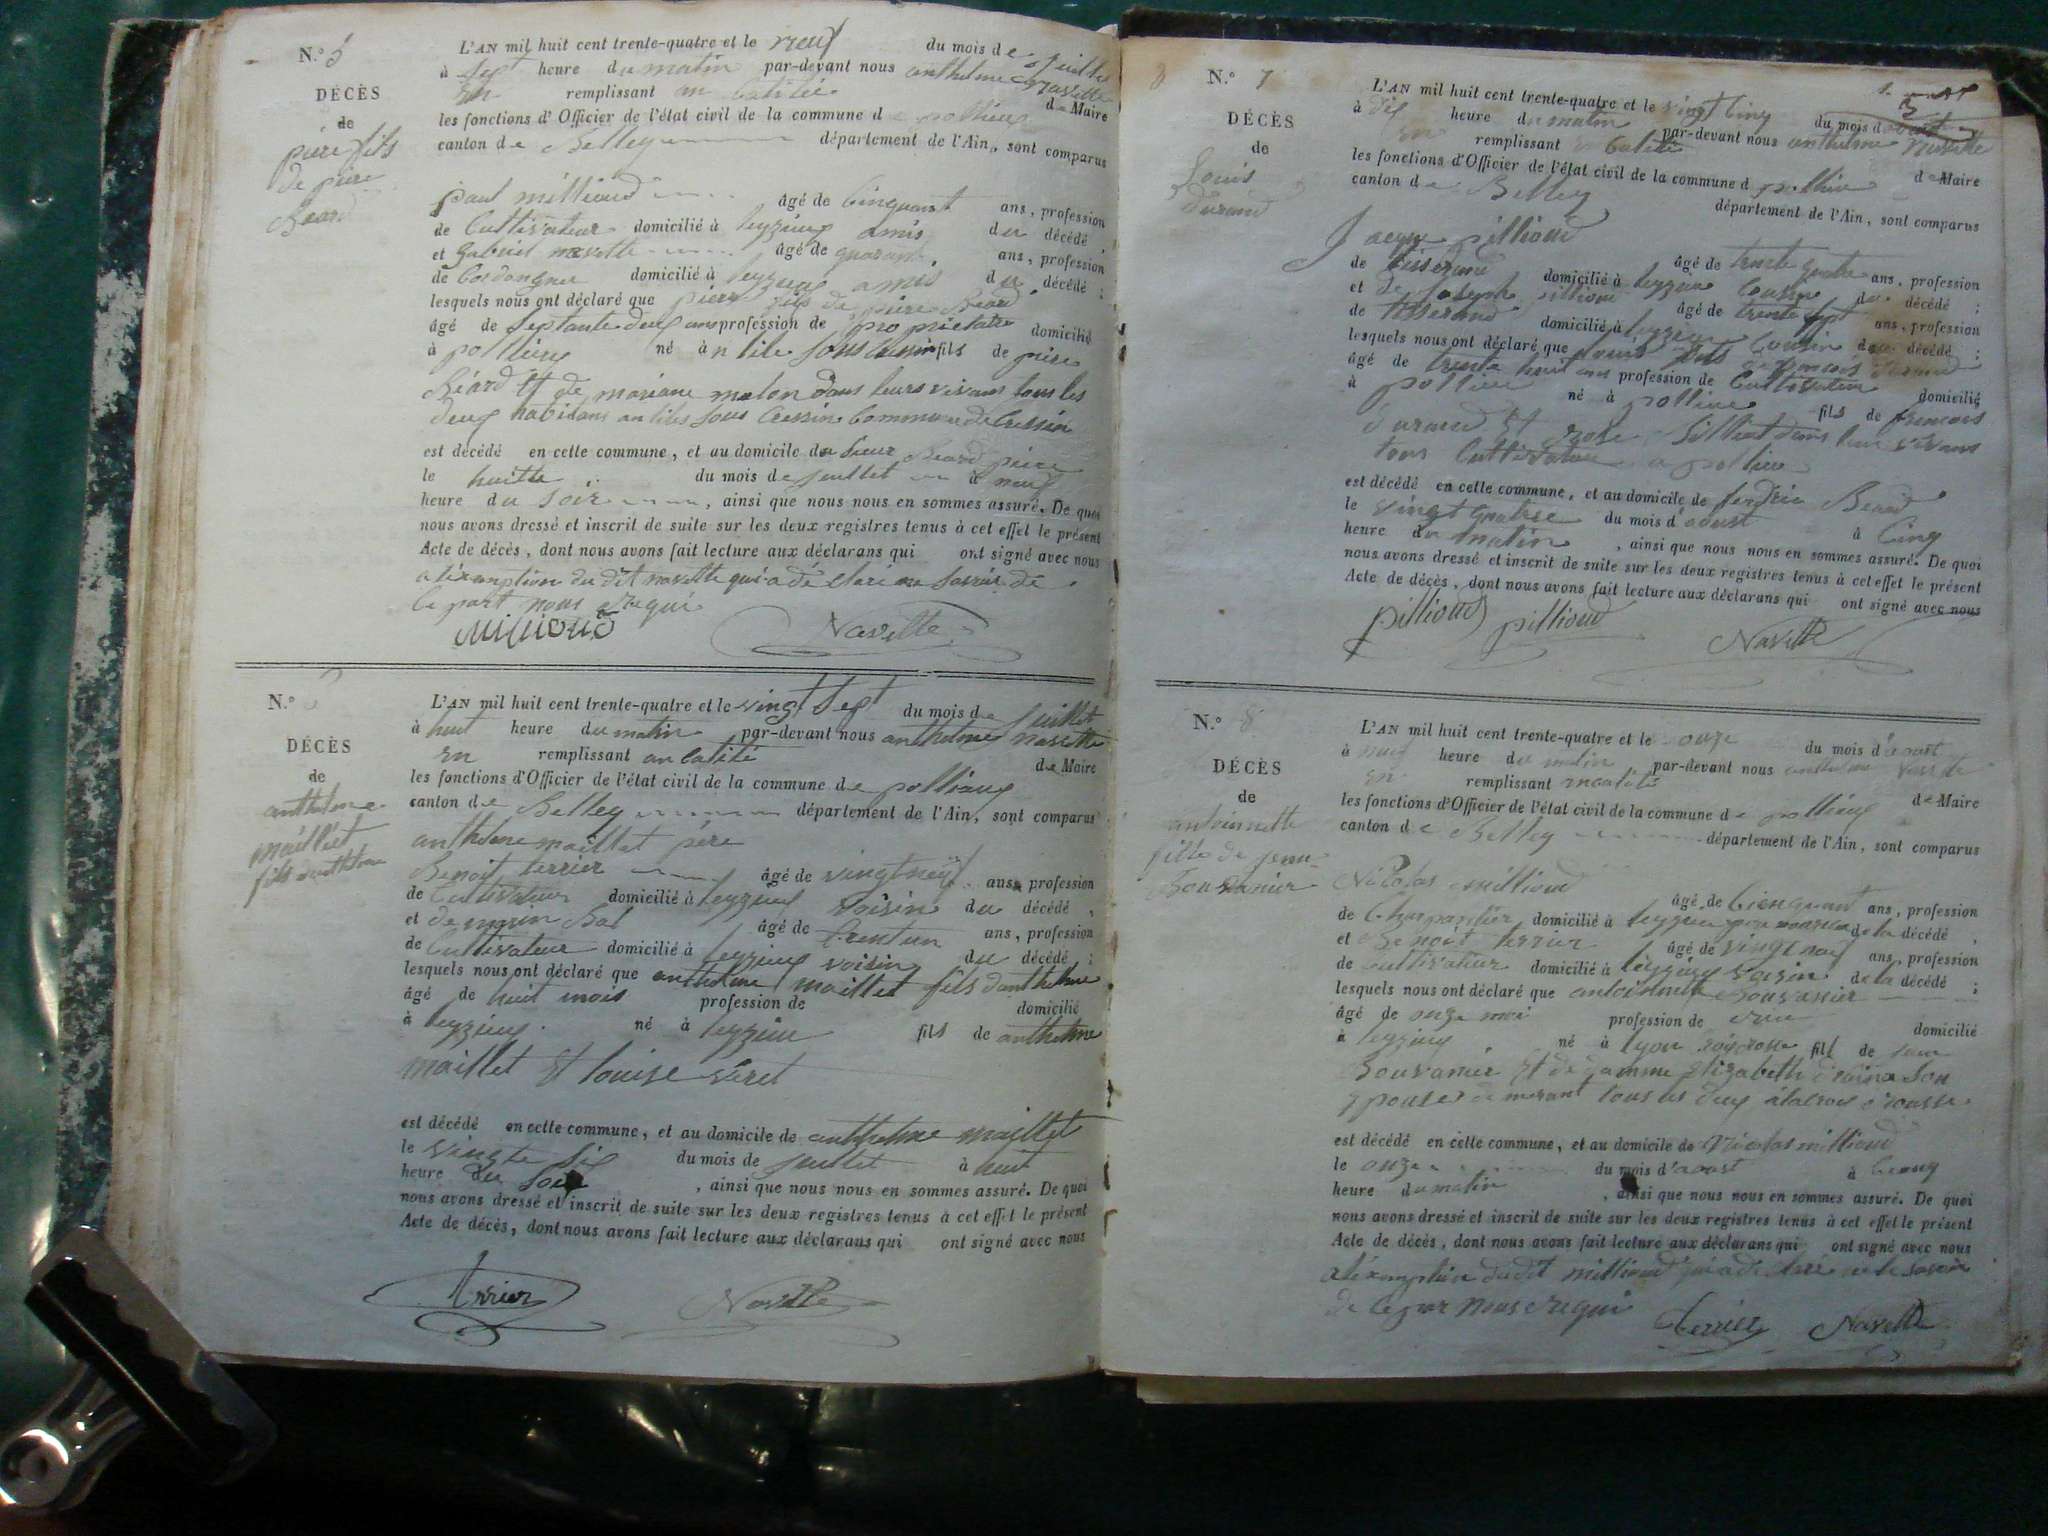 N.º 5
DÉCÈS
de
piere fils
de piere
Béard
L'AN mil huit cent trente-quatre et le neuf du mois de juillet
à sept heure du matin par-devant nous anthelme navette
En remplissant en calitée de Maire
les fonctions d'Officier de l'état civil de la commune de pollieux
canton de Belley département de l'Ain, sont comparus
paul millioud âgé de Cinquant ans, profession
de Cultivateur domicilié à leyzieux amis du décédé,
et gabriel navette âgé de quarant ans, profession
de Cordongner domicilié à leyzieux amis du décédé ;
lesquels nous ont déclaré que piere fils de piere Béard
âgé de septante deux ans profession de proprietaire domicilié
à pollieux né à fils de piere
Béard et de mariane dans leurs vivans tous les
deux habitans sous Cressin Commune de Cressin
est décédé en cette commune, et au domicile du sieur Béard piere
le huitte du mois de juillet à neuf
heure du soir, ainsi que nous nous en sommes assuré. De quoi
nous avons dressé et inscrit de suite sur les deux registres tenus à cet effet le présent
Acte de décès, dont nous avons fait lecture aux déclarans qui ont signé avec nous
a léxemption du dit navette qui a dé clari ne savoir de
ce part nous requi
Millioud Navette
N.º
DÉCÈS
de
anthelme
maillet
fils danthelme
L'AN mil huit cent trente-quatre et le vingt sept du mois de juillet
à huit heure du matin par-devant nous anthelme navette
En remplissant en calité de Maire
les fonctions d'Officier de l'état civil de la commune de pollieux
canton de Belley département de l'Ain, sont comparus
anthelme maillet père
Benoit terrier âgé de vingt neuf ans, profession
de Cultivateur domicilié à leyzieux voisin du décédé,
et de âgé de trent un ans, profession
de Cultivateur domicilié à leyzieux voisin du décédé ;
lesquels nous ont déclaré que anthelme maillet fils danthelme
âgé de huit mois profession de domicilié
à leyzieux né à leyzieu fils de anthelme
maillet Et louise
est décédé en cette commune, et au domicile de anthelme maillet
le vingte six du mois de juillet à huit
heure du soir, ainsi que nous nous en sommes assuré. De quoi
nous avons dressé et inscrit de suite sur les deux registres tenus à cet effet le présent
Acte de décès, dont nous avons fait lecture aux déclarans qui ont signé avec nous
terrier Navette
N.º 7
DÉCÈS
de
Louis
Durand
L'AN mil huit cent trente-quatre et le vingt Cinq du mois d
à dix heure du matin par-devant nous anthelme navette
En remplissant en Calité de Maire
les fonctions d'Officier de l'état civil de la commune d pollieu
canton de Belley département de l'Ain, sont comparus
Jacque pillioud âgé de trente quatre ans, profession
de tisserand domicilié à leyzieu Cousin du décédé ;
et de Joseph pillioud âgé de trente sept ans, profession
de tisserand domicilié à leyzieu Cousin du décédé ;
lesquels nous ont déclaré que Louis fils de françois durand
âgé de trente huit ans profession de Cultivateur domicilié
à pollieu né à pollieu fils de francois
durand Et rose dans leur vivans
tous Cultivateur a pollieu
est décédé en cette commune, et au domicile de Béard
le vingt quatre du mois d'aoust à Cinq
heure du matin, ainsi que nous nous en sommes assuré. De quoi
nous avons dressé et inscrit de suite sur les deux registres tenus à cet effet le présent
Acte de décès, dont nous avons fait lecture aux déclarans qui ont signé avec nous
pillioud pillioud Navette
N.º 8
DÉCÈS
de
antoinette
fille de jean
Bouvanier
L'AN mil huit cent trente-quatre et le onze du mois d'aoust
à neuf heure du matin par-devant nous anthelme
En remplissant encalité de Maire
les fonctions d'Officier de l'état civil de la commune de pollieux
canton de Belley département de l'Ain, sont comparus
Nicolas millioud âgé de Cienquant ans, profession
de Charpantier domicilié à leyzieu de la décédé,
et Benoit terrier âgé de vingt neuf ans, profession
de Cultivateur domicilié à leyzieux voisin de la décédé ;
lesquels nous ont déclaré que antoinnette Bouvanier
âgé de onze moi profession de domicilié
à leyzieux né à lyon fill de jean
Bouvanier Et de damme Elizabeth son
Epouse demerant tous les deux alacroix rousse
est décédé en cette commune, et au domicile de Nicolas millioud
le onze du mois d'aoust à
heure du matin, ainsi que nous nous en sommes assuré. De quoi
nous avons dressé et inscrit de suite sur les deux registres tenus à cet effet le présent
Acte de décès, dont nous avons fait lecture aux déclarans qui ont signé avec nous
aléxemption dudit millioud qui a declaré ne le savoir
de ce par nous requi terrier Navette